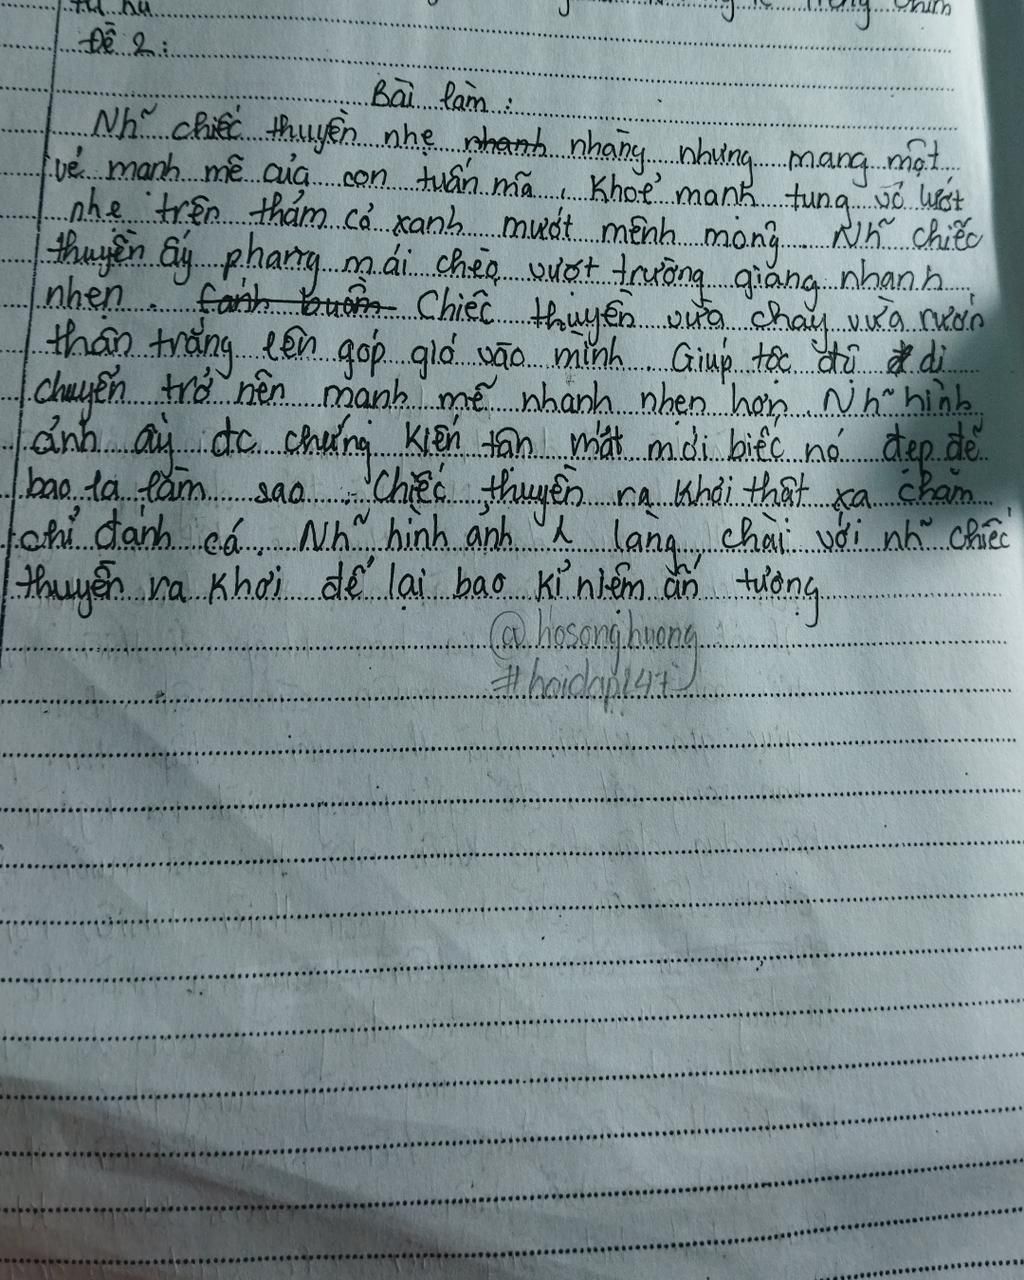 tu hú
Đề 2:
Bài làm:
Nh~ chiếc thuyền nhẹ nhanh nhàng nhưng mang một
vẻ mạnh mẽ của con tuấn mã, khoẻ mạnh tung vó lướt
nhẹ trên thảm cỏ xanh mướt mênh mông. Nh~ chiếc
thuyền ấy phang mái chèo, vượt trường giang nhanh
nhẹn. Cánh buồm Chiếc thuyền vừa chạy vừa rướn
thân trắng lên góp gió vào mình. Giúp tộc độ di
chuyển trở nên mạnh mẽ nhanh nhẹn hơn. Nh~ hình
ảnh ấy đc chứng kiến tận mắt mới biếc nó đẹp đẽ
bao la lắm sao. Chiếc thuyền ra khơi thật xa chăm
chỉ đánh cá. Nh~ hình ảnh làng chài với nh~ chiếc
thuyền ra khơi để lại bao kỉ niệm ấn tượng
@hosonghuong
#hoidap247